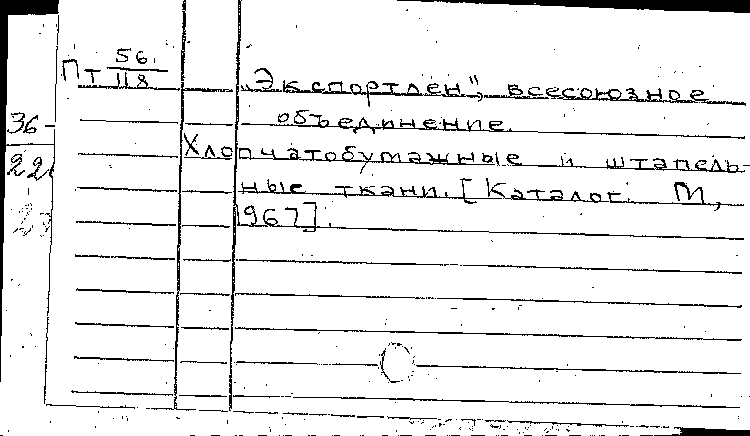 Пт 56/118
„Экспортлен", всесоюзное
объединение.
Хлопчатобумажные и штапель-
ные ткани. [Каталог. М.,
1967].
36-